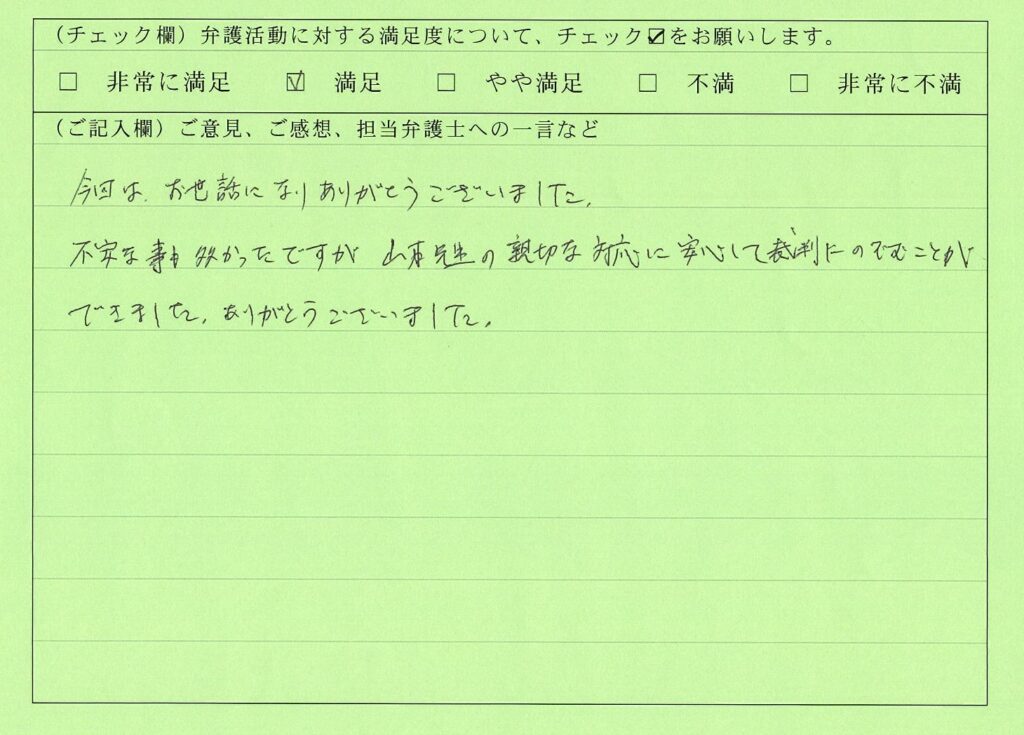 （チェック欄）弁護活動に対する満足度について、チェック☑をお願いします。
□ 非常に満足 ☑ 満足 □ やや満足 □ 不満 □ 非常に不満
（ご記入欄）ご意見、ご感想、担当弁護士への一言など
今回は、お世話になりありがとうございました。
不安な事も多かったですが 山本先生の親切な対応に安心して裁判にのぞむことが
できました。ありがとうございました。